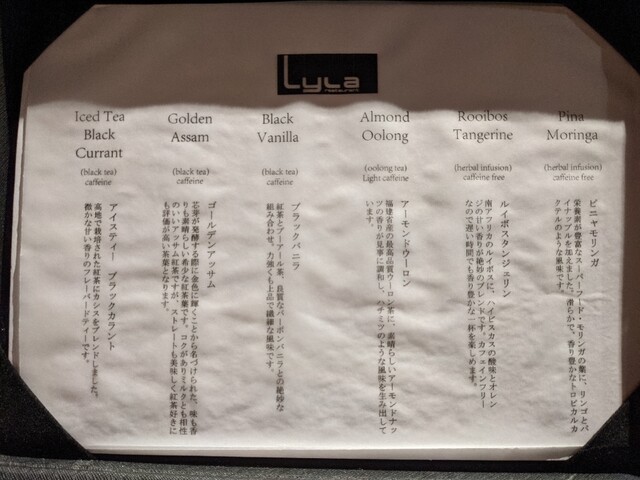 Lyla
restaurant
Iced Tea
Black
Currant
(black tea)
caffeine
アイスティー　ブラックカラント
高地で栽培された紅茶にカシスをブレンドしました。
微かな甘い香りのフレーバードティーです。
Golden
Assam
(black tea)
caffeine
ゴールデンアッサム
芯芽が発酵する際に金色に輝くことから名づけられた、味も香
りも素晴らしい希少な紅茶葉です。コクがありミルクとも相性
のいいアッサム紅茶ですが、ストレートも美味しく紅茶好きに
も評価が高い茶葉となります。
Black
Vanilla
(black tea)
caffeine
ブラックバニラ
紅茶とプーアール茶、良質なバーボンバニラとの絶妙な
組み合わせ。力強くも上品で繊細な風味です。
Almond
Oolong
(oolong tea)
Light caffeine
アーモンドウーロン
福建省産の最高品質ウーロン茶に、素晴らしいアーモンドナッ
ツの香りが見事に調和。ハチミツのような風味を生み出して
います。
Rooibos
Tangerine
(herbal infusion)
caffeine free
ルイボスタンジェリン
南アフリカのルイボスに、ハイビスカスの酸味とオレン
ジの甘い香りが絶妙のブレンドです。カフェインフリー
なので遅い時間でも香り豊かな一杯を楽しめます。
Pina
Moringa
(herbal infusion)
caffeine free
ピニャモリンガ
栄養素が豊富なスーパーフード・モリンガの葉に、リンゴとパ
イナップルを加えました。滑らかで、香り豊かなトロピカルカ
クテルのような風味です。